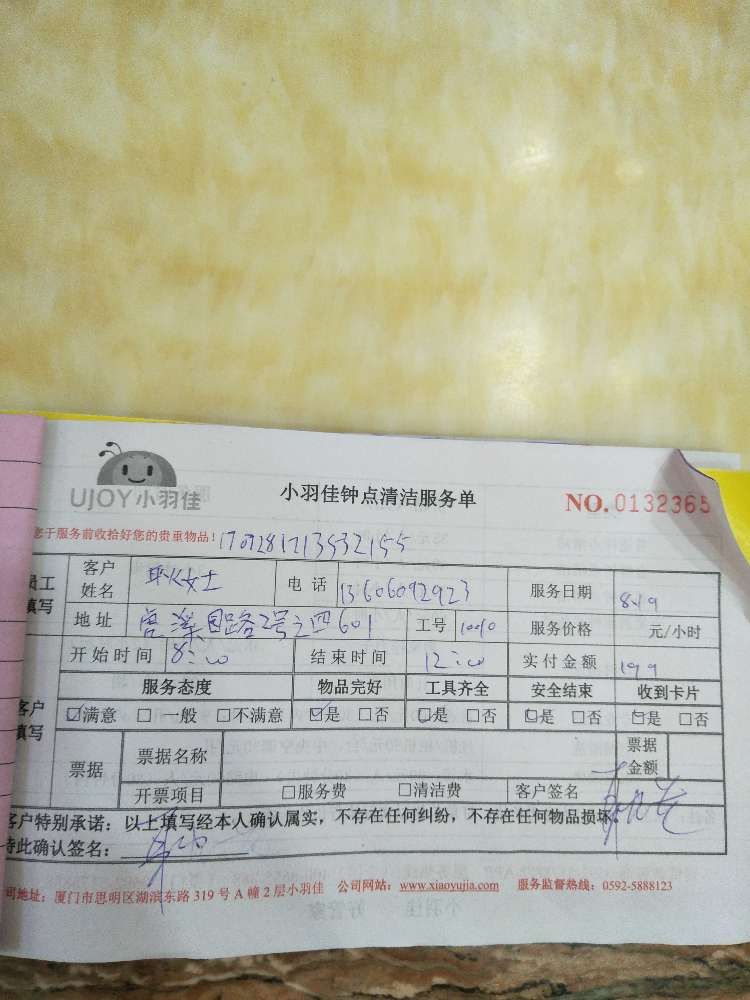 UJOY小羽佳 小羽佳钟点清洁服务单 NO.0132365
您于服务前收拾好您的贵重物品!
员工填写 客户姓名 女士 电话 13606092923 服务日期 8.19
地址 园路2号之四601 工号 服务价格 元/小时
开始时间 8:00 结束时间 12:00 实付金额 199
客户填写 服务态度 物品完好 工具齐全 安全结束 收到卡片
☑满意 □一般 □不满意 ☑是 □否 ☑是 □否 ☑是 □否 ☑是 □否
票据 票据名称 票据金额
开票项目 □服务费 □清洁费 客户签名
客户特别承诺:以上填写经本人确认属实,不存在任何纠纷,不存在任何物品损坏
特此确认签名:
司地址:厦门市思明区湖滨东路 319 号 A 幢 2 层小羽佳 公司网站:www.xiaoyujia.com 服务监督热线:0592-5888123